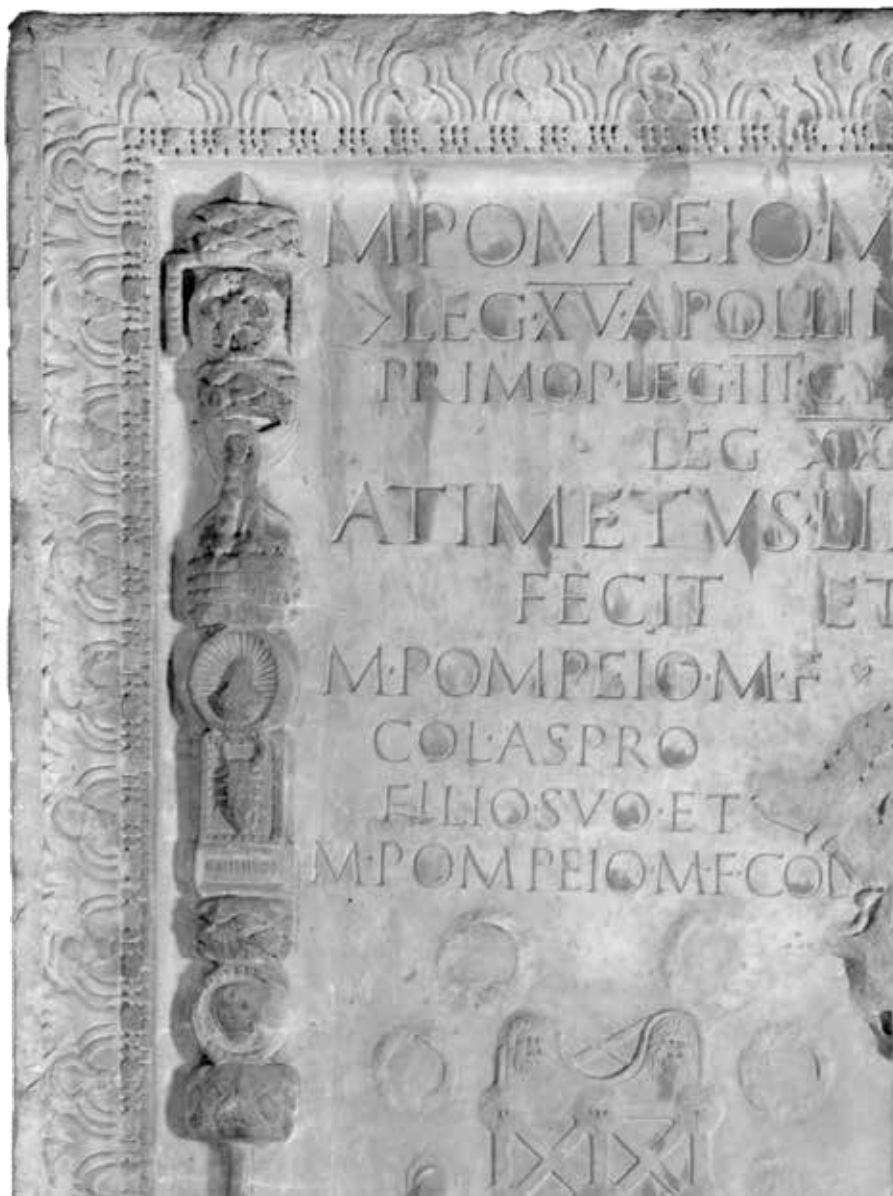 M·POMPEIO M
>LEG·XV·APOLLI
PRIMO P·LEG·III·CY
LEG XX
ATIMETVS LI
FECIT ET
M·POMPEIO·M·F
COL·ASPRO
FILIO SVO·ET
M·POMPEIO·M·F·COL